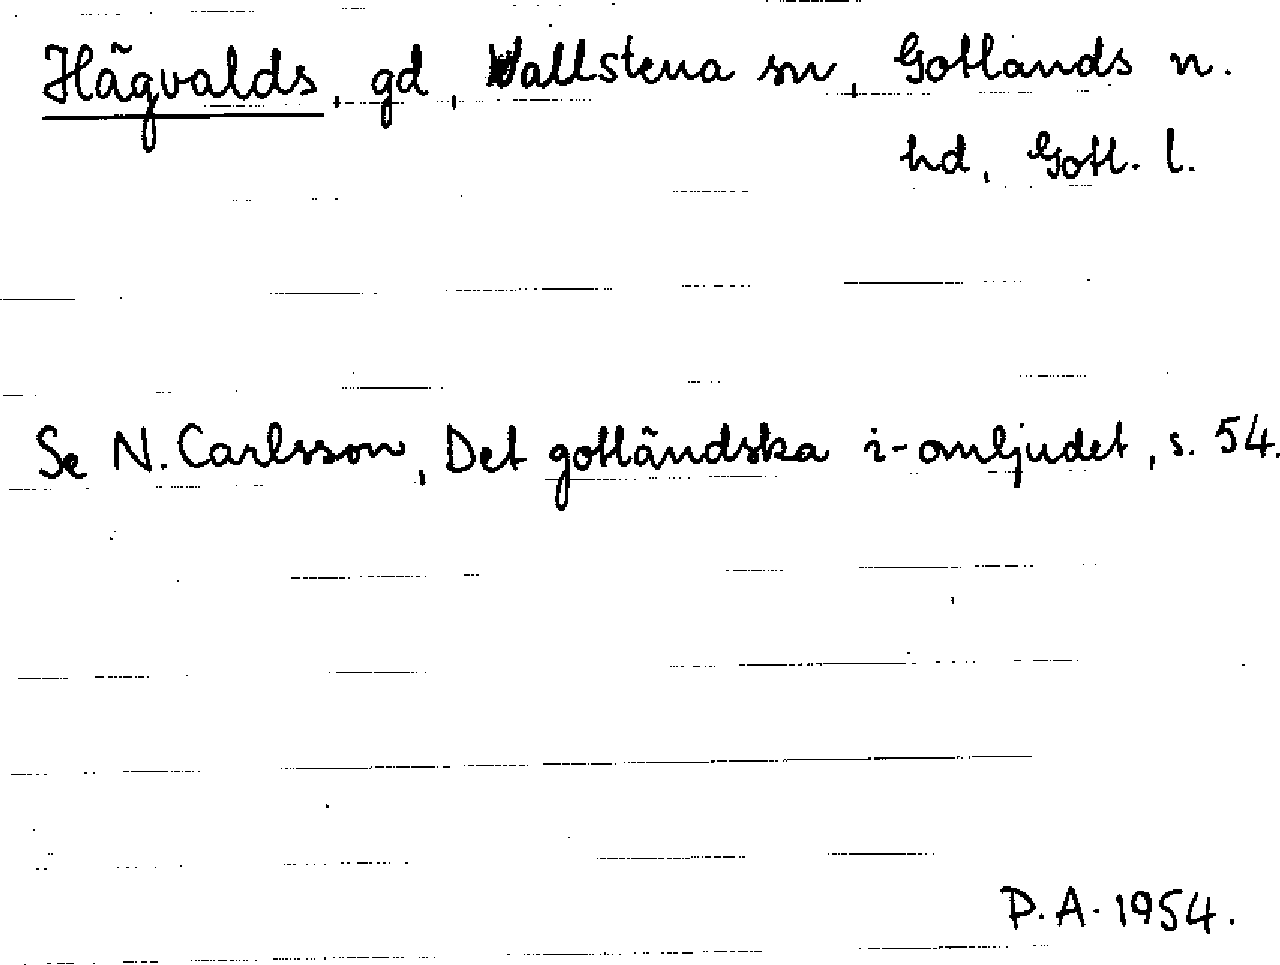 Hägvalds, gd, Vallstena sn, Gotlands n.
hd, Gotl. l.
Se N. Carlsson, Det gotländska i-omljudet, s. 54.
P.A. 1954.